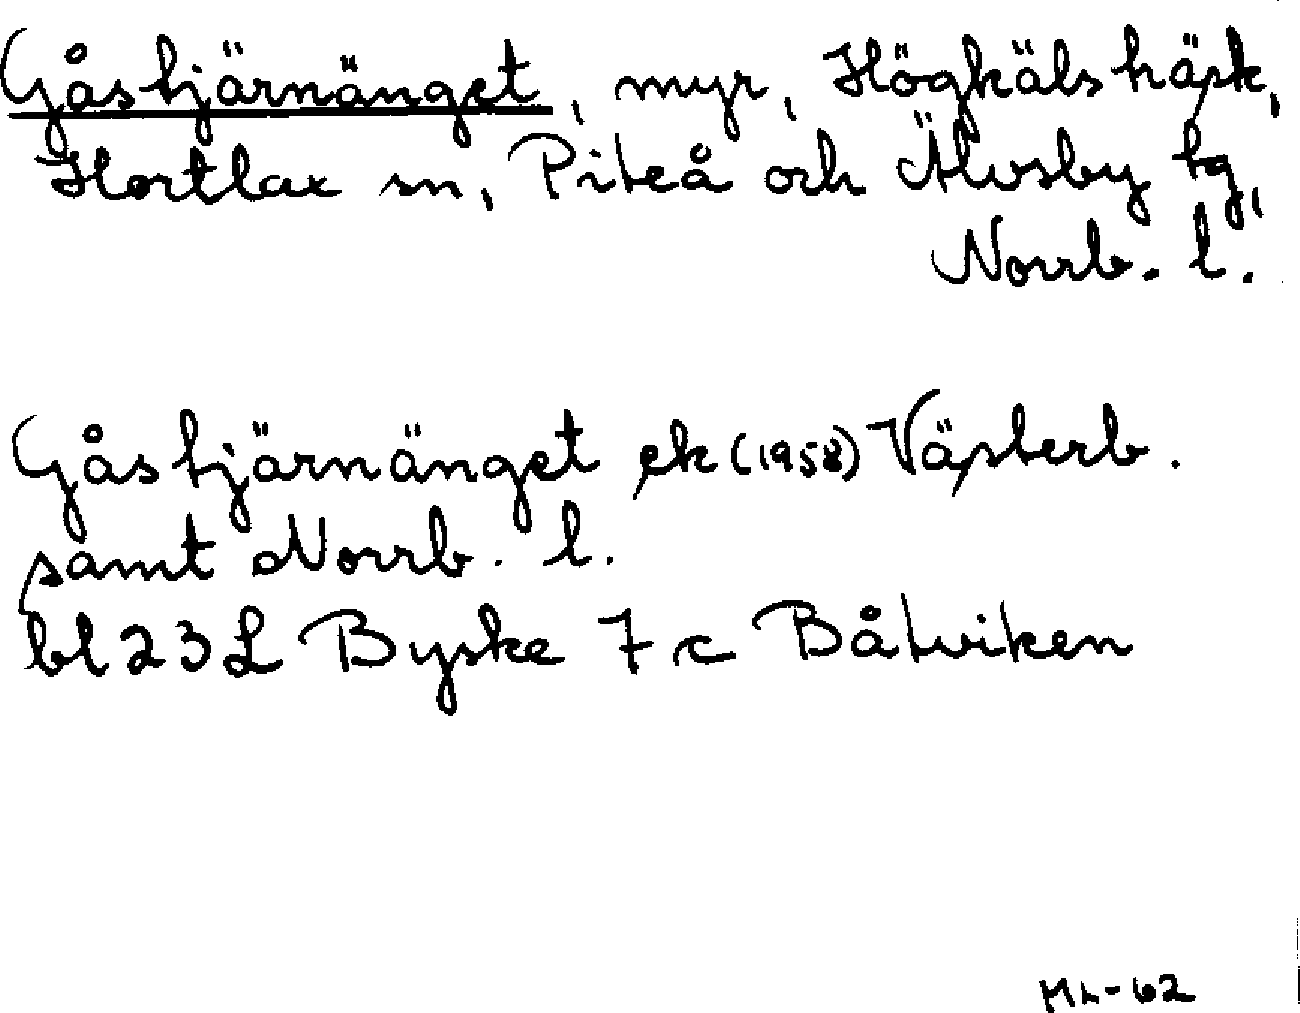 Gåstjärnänget, myr, Högkälshäsk,
Hortlax sn, Piteå och Älvsby tg,
Norrb. l.
Gåstjärnänget ek (1958) Västerb.
samt Norrb. l.
bl 23 L Byske 7 c Båtviken
ML-62